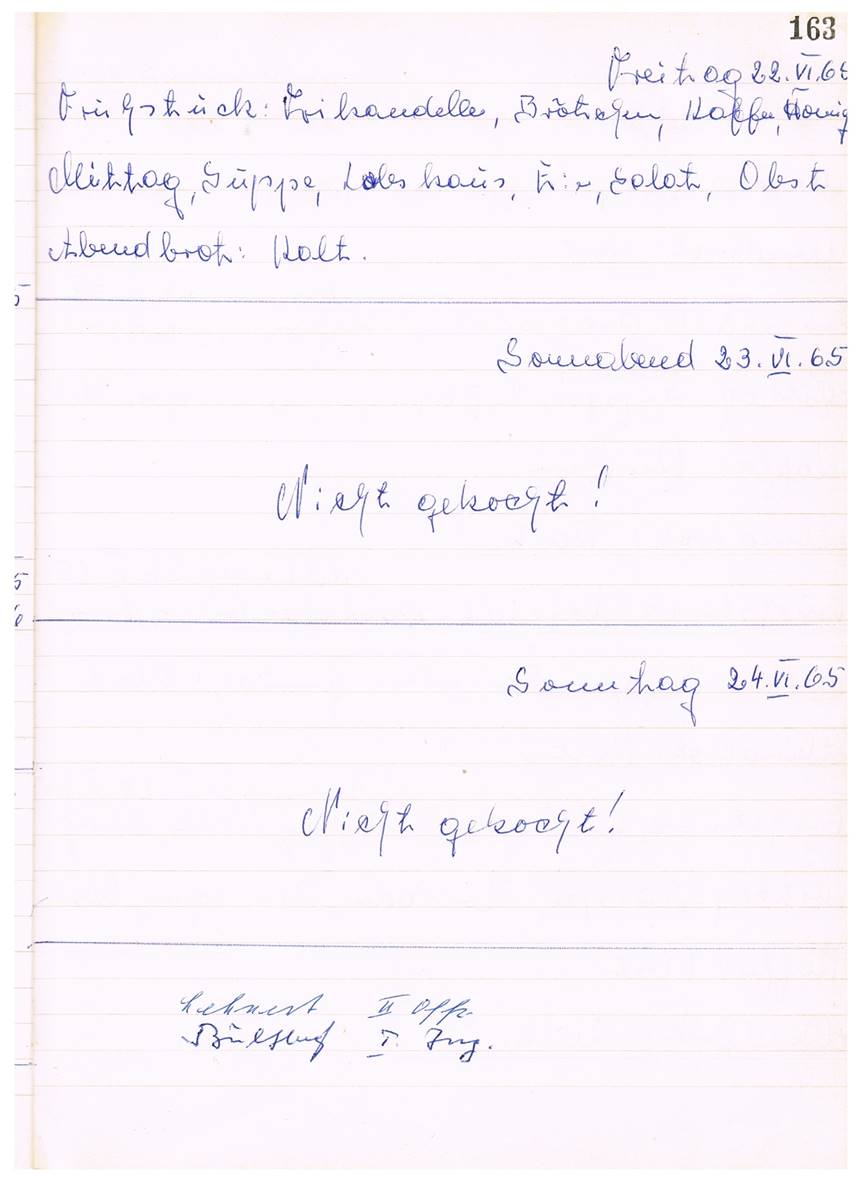 163
Freitag 22.VI.65
Frühstück: Frikandellen, Brötchen, Kaffee, Honig
Mittag, Suppe, Labskaus, Eier, Salat, Obst
Abendbrot: Kalt.
5
Sonnabend 23.VI.65
Nicht gekocht!
5
6
Sonntag 24.VI.65
Nicht gekocht!
Lehnert II Offz.
I. Ing.